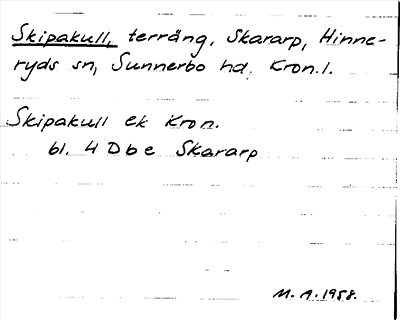 Skipakull, terräng, Skararp, Hinne-
ryds sn, Sunnerbo hd, Kron. l.
Skipakull ek Kron.
bl. 4 D b e Skararp
M. A. 1958.